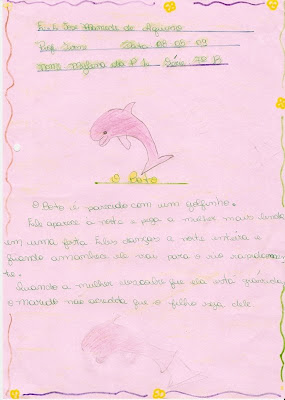 E. E. José Mamede de Aquino
Prof. Data 08 09 09
Nome da P. de Série 7º B
O Boto
O Boto é parecido com um golfinho.
Ele aparece a noite e pega a mulher mais linda
em uma festa Eles dançam a noite inteira e
quando amanhece ele vai para o rio rapidamen-
te.
Quando a mulher descobre que ela esta grávida
o marido não acredita que o filho seja dele